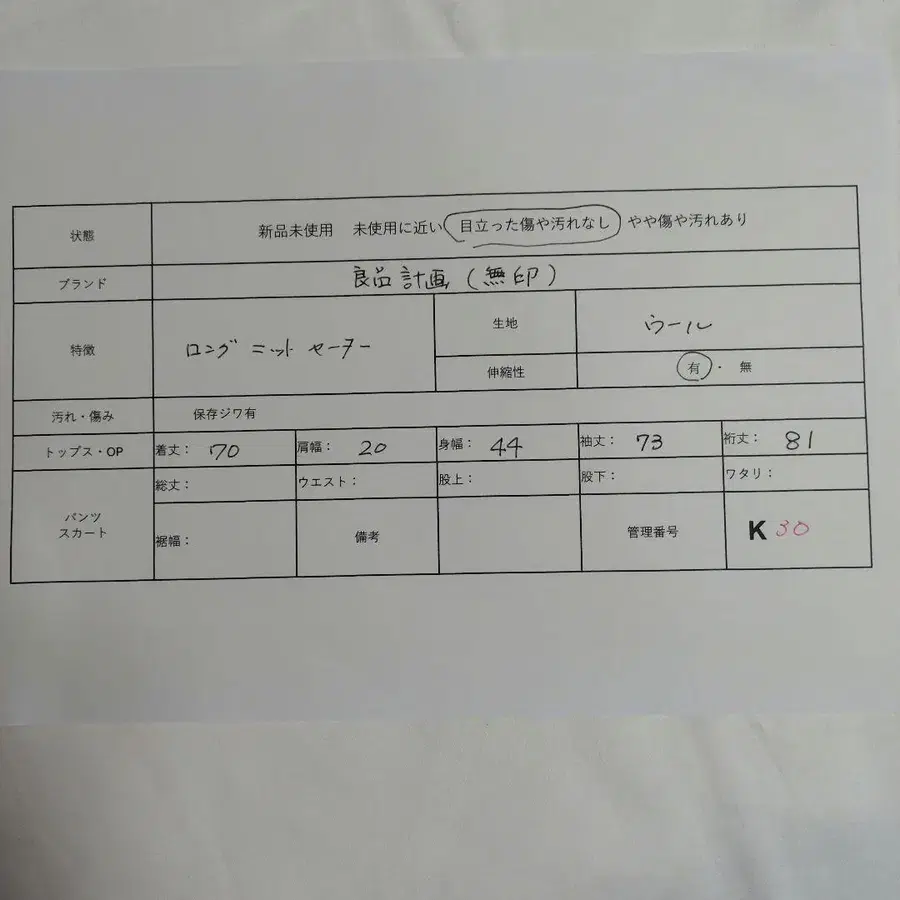 状態 新品未使用 未使用に近い 目立った傷や汚れなし やや傷や汚れあり
ブランド 良品計画(無印)
特徴 ロングニットセーター 生地 ウール
伸縮性 有・無
汚れ・傷み 保存ジワ有
トップス・OP 着丈: 70 肩幅: 20 身幅: 44 袖丈: 73 裄丈: 81
パンツ
スカート
総丈: ウエスト: 股上: 股下: ワタリ:
裾幅: 備考 管理番号 K 30